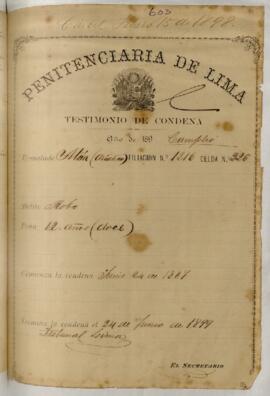 603
Junio 15 de 1898.
PENITENCIARIA DE LIMA
TESTIMONIO DE CONDENA
Año de 189
Cumplió
Rematado Atón FILIACION N.° 1216 CELDA N. 326
Delito Robo
Pena 12 años (doce)
Comienza la condena Junio 24 de 1887
Termina la condena el 24 de Junio de 1899
Tribunal Lima
EL SECRETARIO